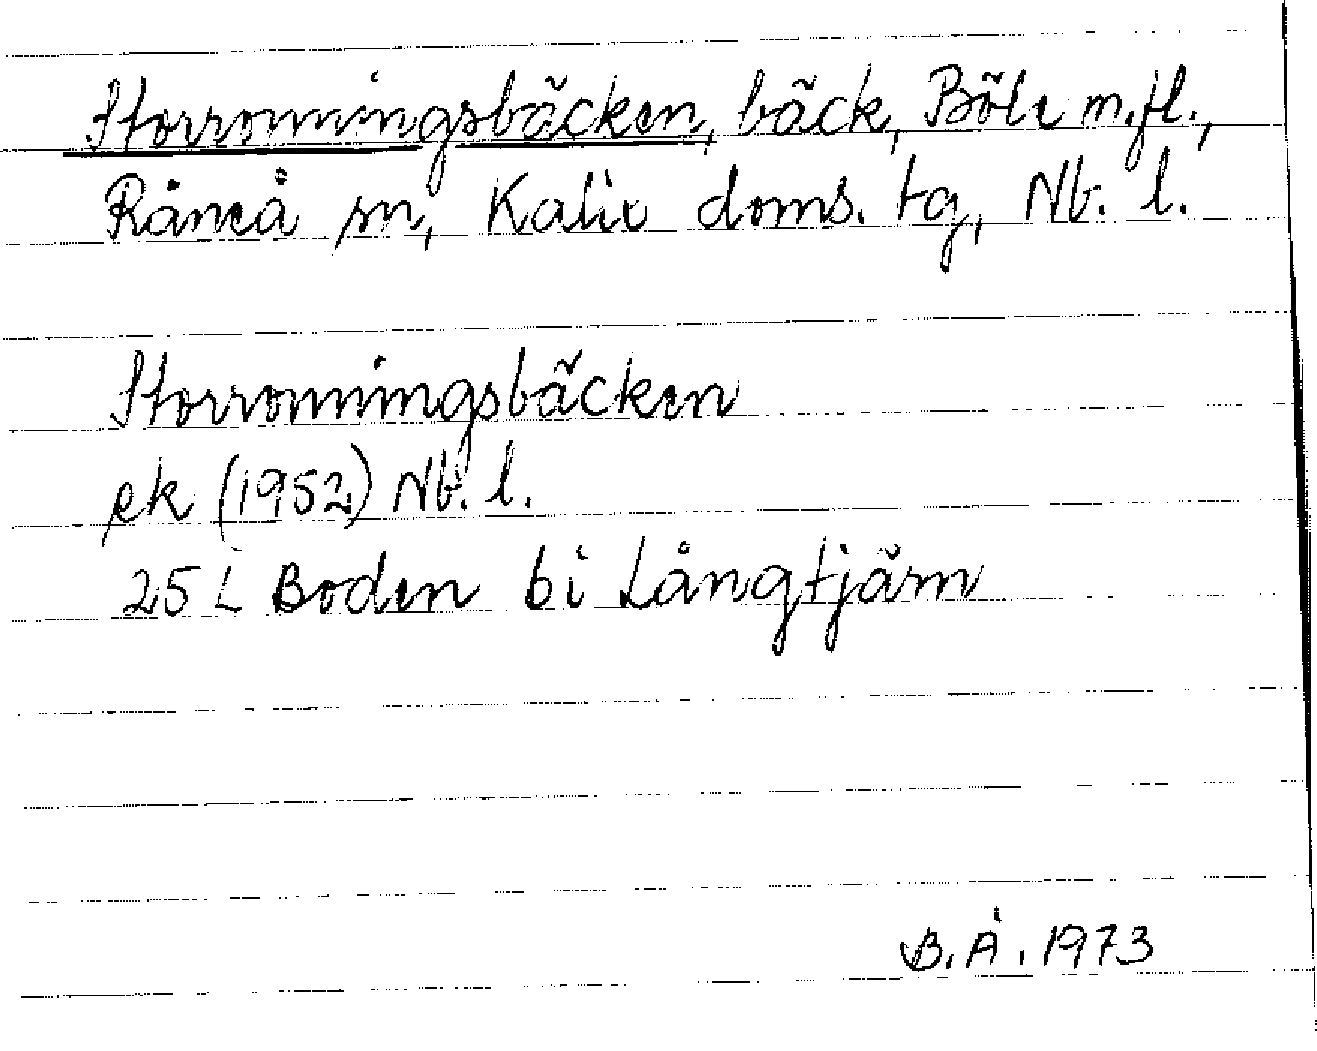 Storronningsbäcken, bäck, Böle m.fl.,
Råneå sn, Kalix doms. tg, Nb. l.
Storronningsbäcken
ek (1952) Nb. l.
25 L Boden bi Långtjärn
B.Å. 1973